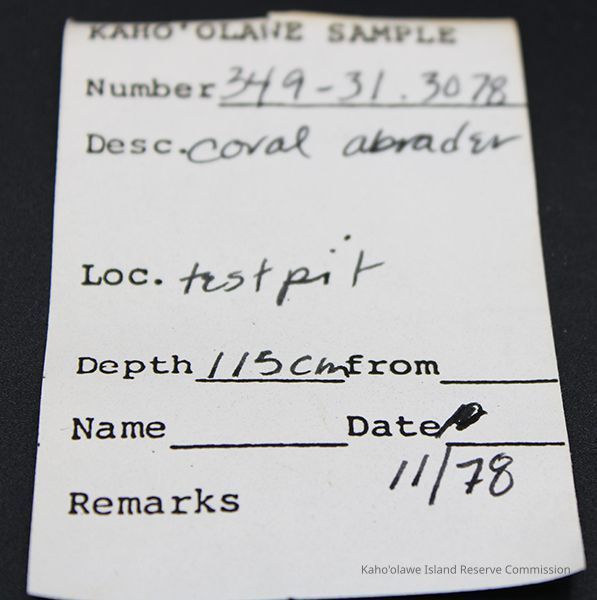 KAHO'OLAWE SAMPLE
Number 349-31.3078
Desc. coral abrader
Loc. test pit
Depth 115cm from
Name Date
11/78
Remarks
Kaho'olawe Island Reserve Commission